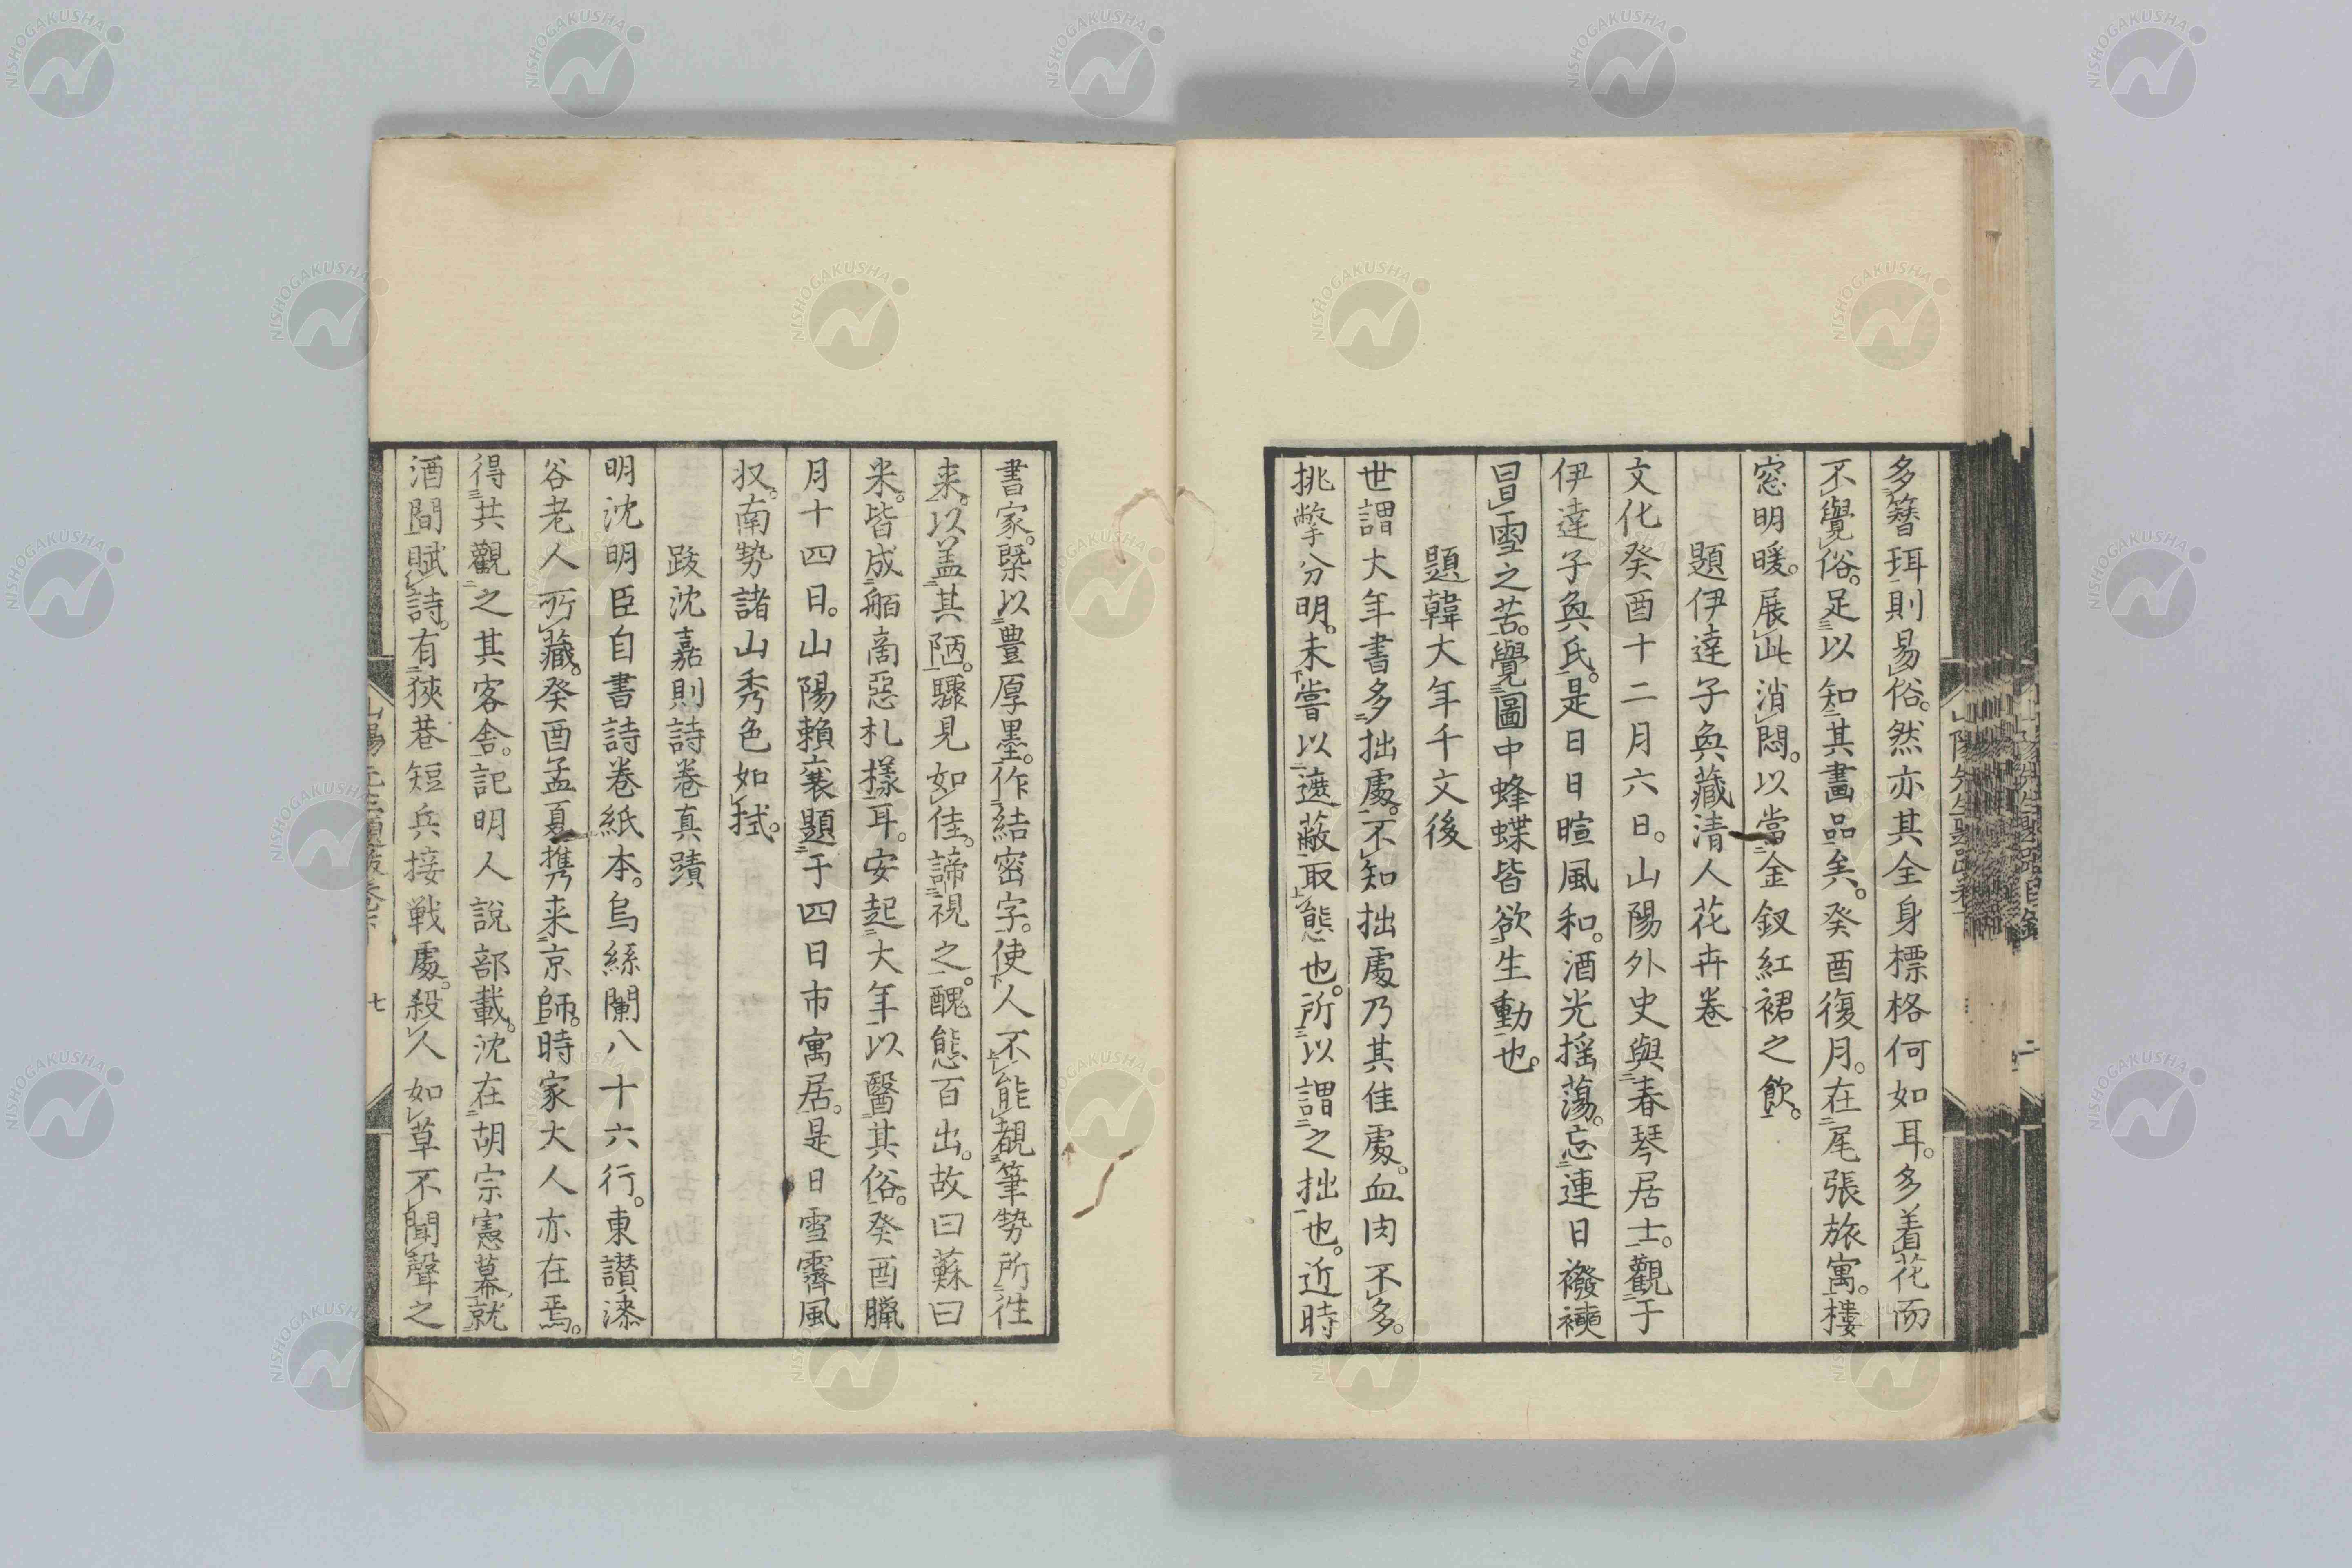 多簪珥則易俗。然亦其全身標格何如耳。多着花而
不覺俗。足以知其畫品矣。癸酉復月。在尾張旅寓。樓
窓明暖。展此消悶。以當金釵紅裙之飲。
題伊達子奐藏清人花卉卷
文化癸酉十二月六日。山陽外史與春琴居士。觀于
伊達子奐氏。是日日暄風和。酒光搖蕩。忘連日襏襫
冒雪之苦。覺圖中蜂蝶皆欲生動也。
題韓大年千文後
世謂大年書多拙處。不知拙處乃其佳處。血肉不多。
挑撆分明。未嘗以遮蔽取態也。所以謂之拙也。近時
書家。槩以豊厚墨。作結密字。使人不能覩筆勢所往
来。以盖其陋。驟見如佳。諦視之。醜態百出。故曰蘇曰
米。皆成舶啇惡札樣耳。安起大年以醫其俗。癸酉臘
月十四日。山陽賴襄題于四日市寓居。是日雪霽風
収。南勢諸山秀色如拭。
跋沈嘉則詩卷真蹟
明沈明臣自書詩卷紙本。烏絲闌八十六行。東讃漆
谷老人所藏。癸酉孟夏携来京師。時家大人亦在焉。
得共觀之其客舎。記明人說部載。沈在胡宗憲幕。就
酒間賦詩。有狹巷短兵接戦處。殺人如草不聞聲之
七
NISHOGAKUSHA